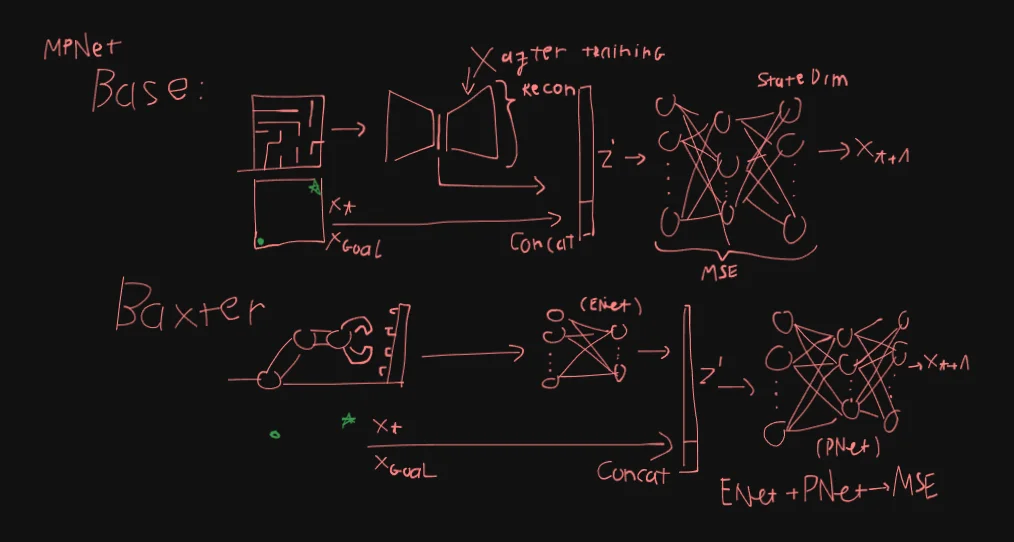 MPNet
Base:
X after training
Recon
StateDim
Z'
Xt+1
Xt
XGoal
Concat
MSE
Baxter
(ENet)
Z'
Xt+1
Xt
XGoal
Concat
(PNet)
ENet+PNet→MSE